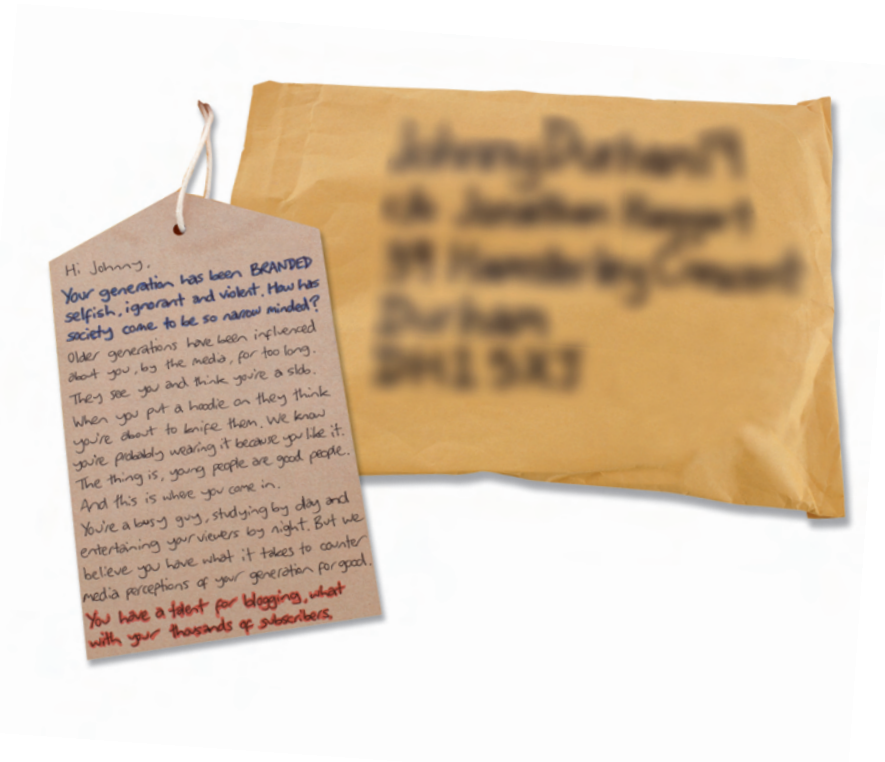 Hi Johnny,
Your generation has been BRANDED
selfish, ignorant and violent. How has
society come to be so narrow minded?
Older generations have been influenced
about you, by the media, for too long.
They see you and think you're a slob.
When you put a hoodie on they think
you're about to knife them. We know
you're probably wearing it because you like it.
The thing is, young people are good people.
And this is where you come in.
You're a busy guy, studying by day and
entertaining your viewers by night. But we
believe you have what it takes to counter
media perceptions of your generation for good.
You have a talent for blogging, what
with your thousands of subscribers,